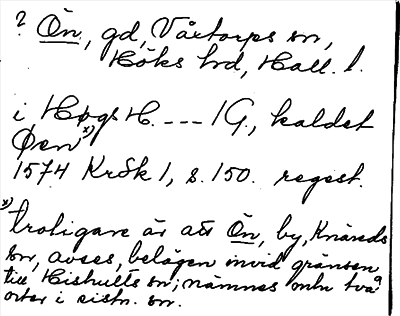 ? Ön, gd, Vårtorps sn,
Höks hd, Hall. l.
i Høgs H. --- 1 G., kaldet
Øen x)
1574 KrSk 1, s. 150. regest.
x) troligare är att Ön, by, Knäreds
sn, avses, belägen invid gränsen
till Hishults sn; nämnes mln två
orter i sistn. sn.